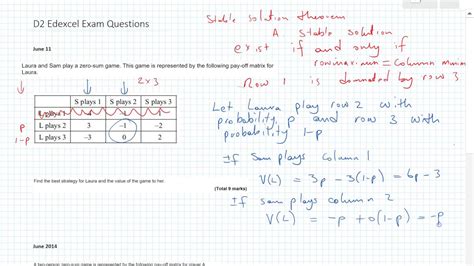 D2 Edexcel Exam Questions
June 11
Laura and Sam play a zero-sum game. This game is represented by the following pay-off matrix for
Laura.
S plays 1 S plays 2 S plays 3
L plays 1
L plays 2 3 −1 −2
L plays 3 −3 0 2
p
1-p
2 x 3
Find the best strategy for Laura and the value of the game to her.
(Total 9 marks)
June 2014
Stable solution theorem
A stable solution
exist if and only if
row maximin = column minimax
Row 1 is dominated by row 3
Let Laura play row 2 with
probability p and row 3 with
probability 1-p
If Sam plays column 1
V(L) = 3p - 3(1-p) = 6p - 3
If Sam plays column 2
V(L) = -p + 0(1-p) = -p